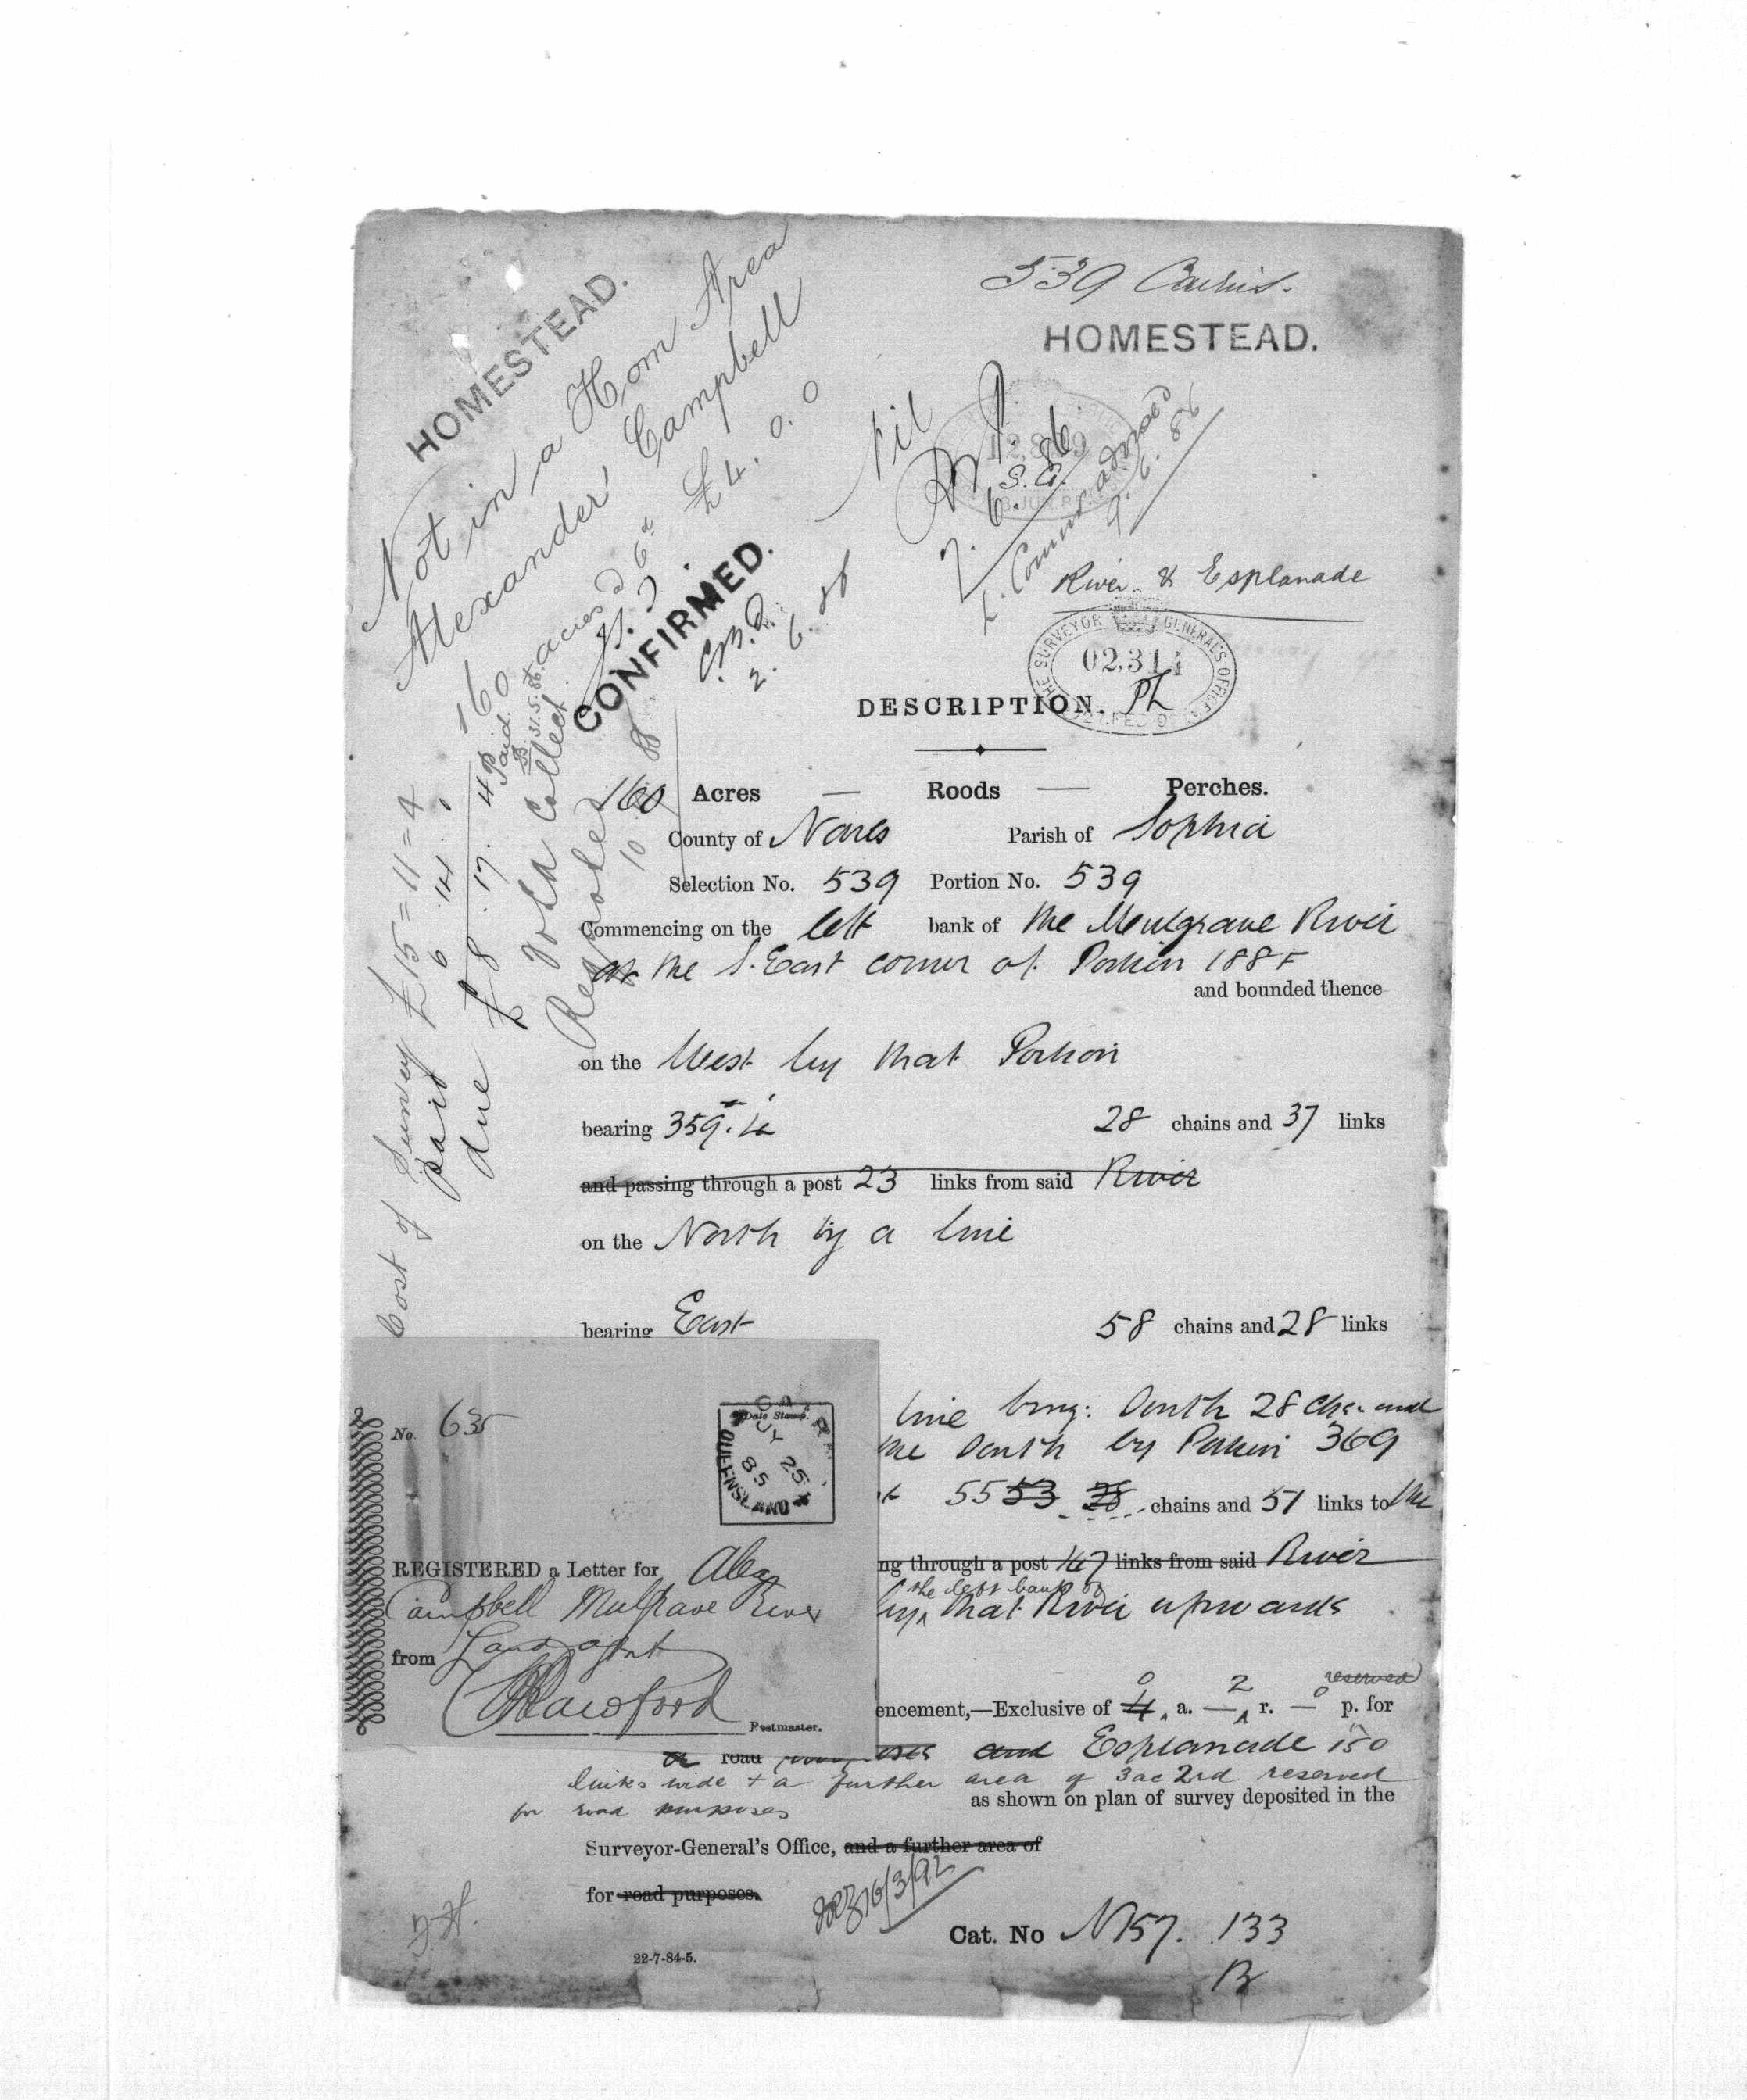 539 Cairns.
HOMESTEAD.
HOMESTEAD.
Not in a Hom Area
Alexander Campbell
160 acres @ 6d £4.0.0
Paid
31.5.86.
CONFIRMED.
2.6.86
7.6.86
S.G.
9.6.86
River & Esplanade
THE SURVEYOR GENERAL'S OFFICE
02,314
DESCRIPTION.
160 Acres — Roods — Perches.
County of Nares Parish of Sophia
Selection No. 539 Portion No. 539
Commencing on the left bank of the Mulgrave River
at the S. East corner of Portion 188F
and bounded thence
on the West by that Portion
bearing 359. 28 chains and 37 links
and passing through a post 23 links from said River
on the North by a line
bearing East 58 chains and 28 links
line brng: South 28 chs. and
the South by Portion 369
55 53 28 chains and 51 links to the
ng through a post 167 links from said River
the left bank of
by that River upwards
0 2 0 reserved
encement,—Exclusive of 4 a. — r. — p. for
or road purposes and Esplanade 150
links wide + a further area of 3ac 2rd reserved
for road purposes as shown on plan of survey deposited in the
Surveyor-General's Office, and a further area of
for road purposes.
16/3/92
Cat. No N157. 133
22-7-84-5.
Cost of Survey £15=11=4
paid 6.14.0
due £8.17.4
Collect
No. 635
Date Stamp.
JY 25
85
QUEENSLAND
REGISTERED a Letter for Alex
Campbell Mulgrave River
from Land agent
Crawford
Postmaster.